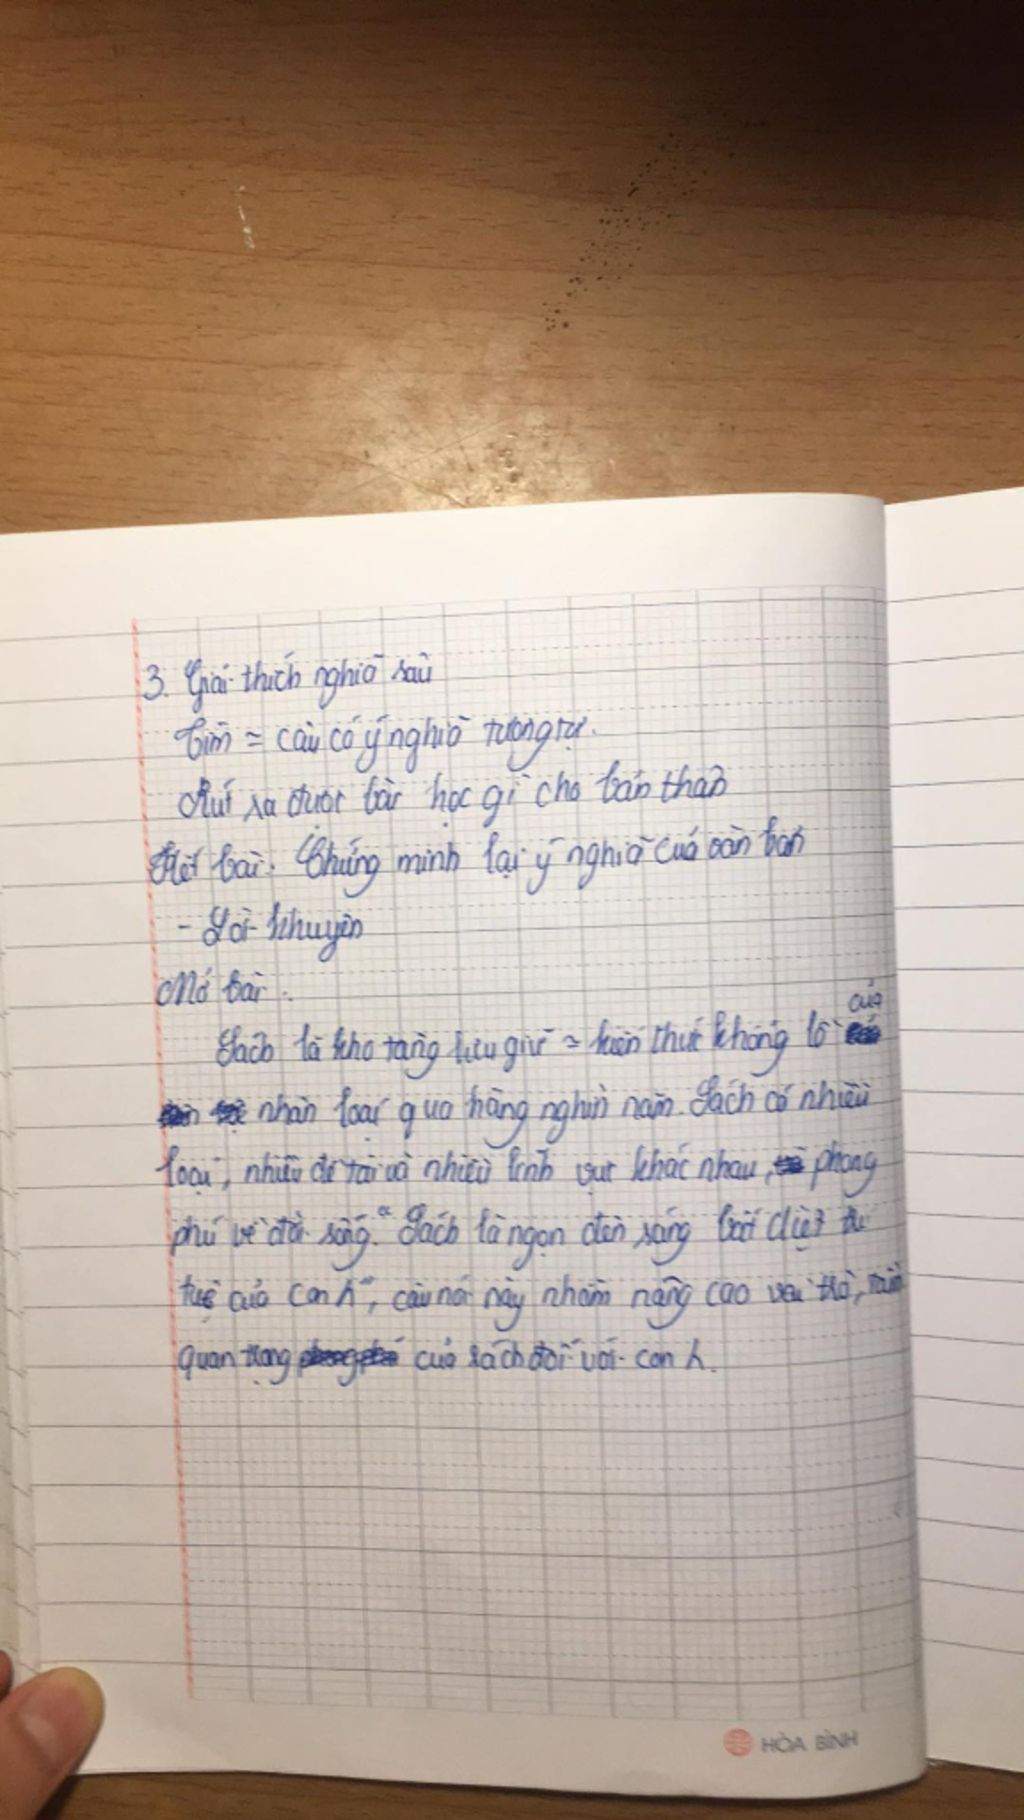 3. Giải thích nghĩa sâu
Tìm ~ câu có ý nghĩa tương tự.
Rút ra được bài học gì cho bản thân
Kết bài: Chứng minh lại ý nghĩa của văn bản
- Lời khuyên
Mở bài.
Sách là kho tàng lưu giữ ~ kiến thức khổng lồ của
nhân loại qua hàng nghìn năm. Sách có nhiều
loại, nhiều đề tài và nhiều lĩnh vực khác nhau, phong
phú về đời sống. "Sách là ngọn đèn sáng bất diệt trí
tuệ của con h", câu nói này nhằm nâng cao vai trò,
quan trọng của sách đối với con h.
HÒA BÌNH